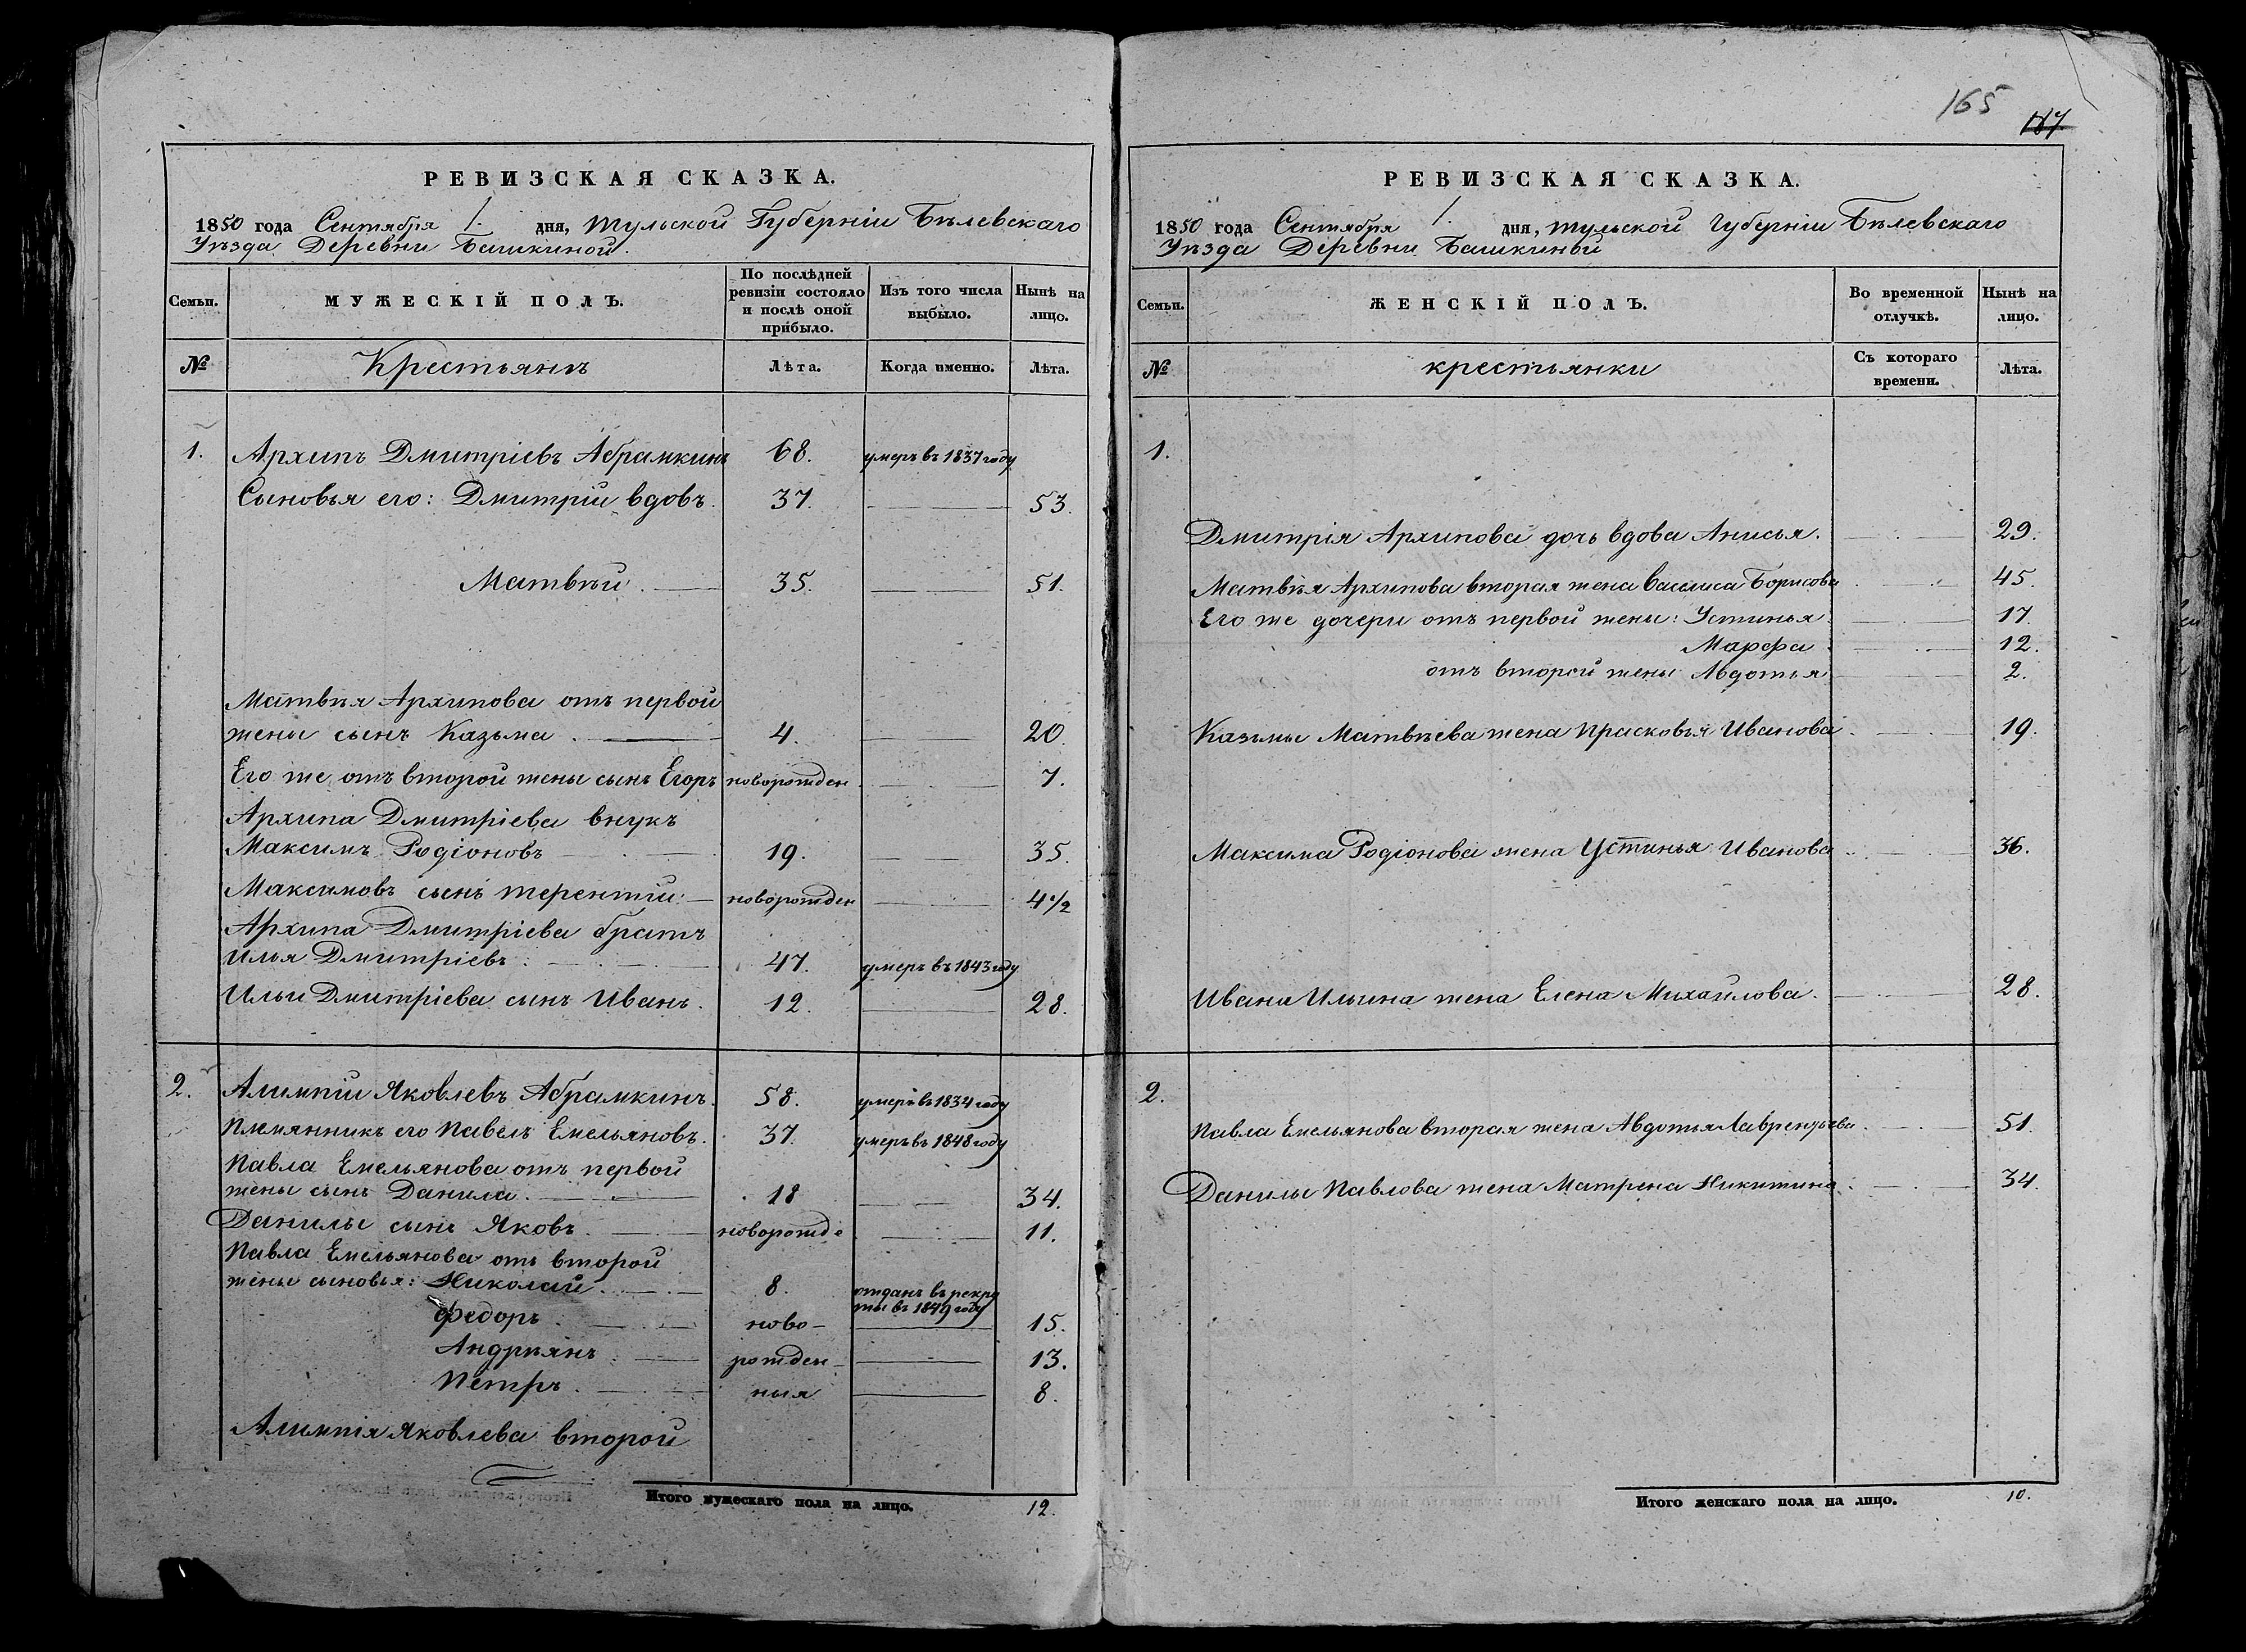 165
187
РЕВИЗСКАЯ СКАЗКА.
1850 года Сентября 1. дня, Тульской Губерніи Бѣлевскаго
Уѣзда Деревни Башкиной.
Семьи. МУЖЕСКІЙ ПОЛЪ. По послѣдней ревизіи состояло и послѣ оной прибыло. Изъ того числа выбыло. Нынѣ на лицо.
№ Крестьянъ Лѣта. Когда именно. Лѣта.
1. Архипъ Дмитріевъ Абрамкинъ 68. умеръ въ 1837 году
Сыновья его: Дмитрій вдовъ. 37. 53.
Матвѣй. 35. 51.
Матвѣя Архипова отъ первой
жены сынъ Казьма. 4. 20.
Его же отъ второй жены сынъ Егоръ новорожден. 7.
Архипа Дмитріева внукъ
Максимъ Родіоновъ 19. 35.
Максимовъ сынъ Терентій новорожден 4 1/2
Архипа Дмитріева братъ
Илья Дмитріевъ. 47. умеръ въ 1843 году
Ильи Дмитріева сынъ Иванъ. 12. 28.
2. Алимпій Яковлевъ Абрамкинъ. 58. умеръ въ 1834 году
Племянникъ его Павелъ Емельяновъ. 37. умеръ въ 1848 году
Павла Емельянова отъ первой
жены сынъ Данила. 18 34.
Данилы сынъ Яковъ. новорожде 11.
Павла Емельянова отъ второй
жены сыновья: Николай. 8. отданъ въ рекру
ты въ 1849 году
Федоръ. ново- 15.
Андреянъ. рожден- 13.
Петръ. ныя 8.
Алимпія Яковлева второй
Итого мужескаго пола на лицо. 12.
РЕВИЗСКАЯ СКАЗКА.
1850 года Сентября 1. дня, Тульской Губерніи Бѣлевскаго
Уѣзда Деревни Башкиной
Семьи. ЖЕНСКІЙ ПОЛЪ. Во временной отлучкѣ. Нынѣ на лицо.
№ крестьянки Съ котораго времени. Лѣта.
1.
Дмитрія Архипова дочь вдова Анисья. 29.
Матвѣя Архипова вторая жена Василиса Борисова 45.
Его же дочери отъ первой жены: Устинья. 17
Марфа. 12.
отъ второй жены Авдотья 2.
Казьмы Матвѣева жена Прасковья Иванова 19.
Максима Родіонова жена Устинья Иванова 36.
Ивана Ильина жена Елена Михайлова. 28.
2.
Павла Емельянова вторая жена Авдотья Лаврентьева 51.
Данилы Павлова жена Матрена Никитина. 34.
Итого женскаго пола на лицо. 10.